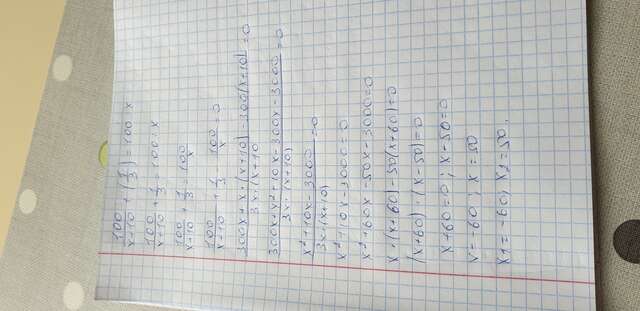 100/x+10 + (1/3) = 100 : x
100/x+10 + 1/3 = 100 : x
100/x+10 + 1/3 = 100/x
100/x+10 + 1/3 - 100/x = 0
300x+x·(x+10)-300(x+10)/3x·(x+10) = 0
300x+x²+10x-300x-3000/3x·(x+10) = 0
x²+10x-3000/3x·(x+10) = 0
x²+10x-3000=0
x²+60x-50x-3000=0
x·(x+60)-50(x+60)=0
(x+60)·(x-50)=0
x+60=0; x-50=0
x=-60; x=50
x1=-60; x2=50.